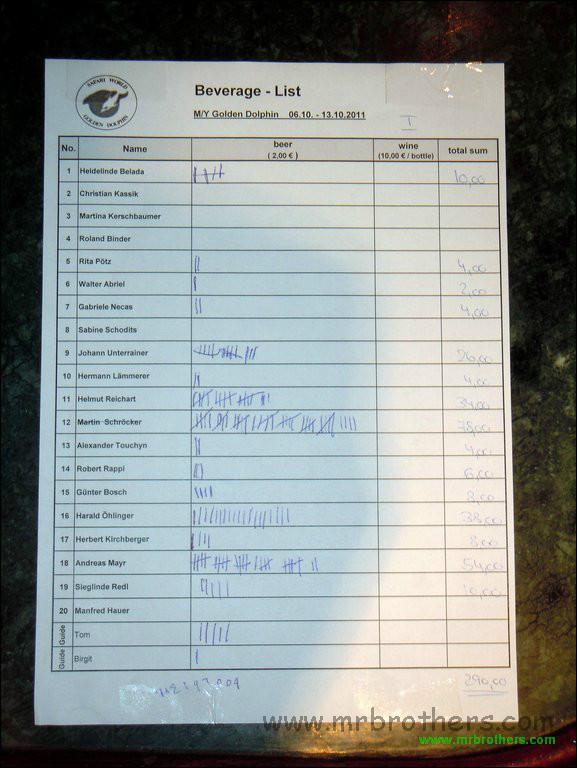 SAFARI WORLD
GOLDEN DOLPHIN
Beverage - List
M/Y Golden Dolphin 06.10. - 13.10.2011
I
No. Name beer ( 2,00 € ) wine (10,00 € / bottle) total sum
1 Heidelinde Belada 10,00
2 Christian Kassik
3 Martina Kerschbaumer
4 Roland Binder
5 Rita Pötz 4,00
6 Walter Abriel 2,00
7 Gabriele Necas 4,00
8 Sabine Schodits
9 Johann Unterrainer 26,00
10 Hermann Lämmerer 4,00
11 Helmut Reichart 34,00
12 Martin Schröcker 78,00
13 Alexander Touchyn 4,00
14 Robert Rappl 6,00
15 Günter Bosch 8,00
16 Harald Öhlinger 38,00
17 Herbert Kirchberger 8,00
18 Andreas Mayr 54,00
19 Sieglinde Redl 10,00
20 Manfred Hauer
Guide Tom
Guide Birgit
290,00
www.mrbrothers.com
www.mrbrothers.com